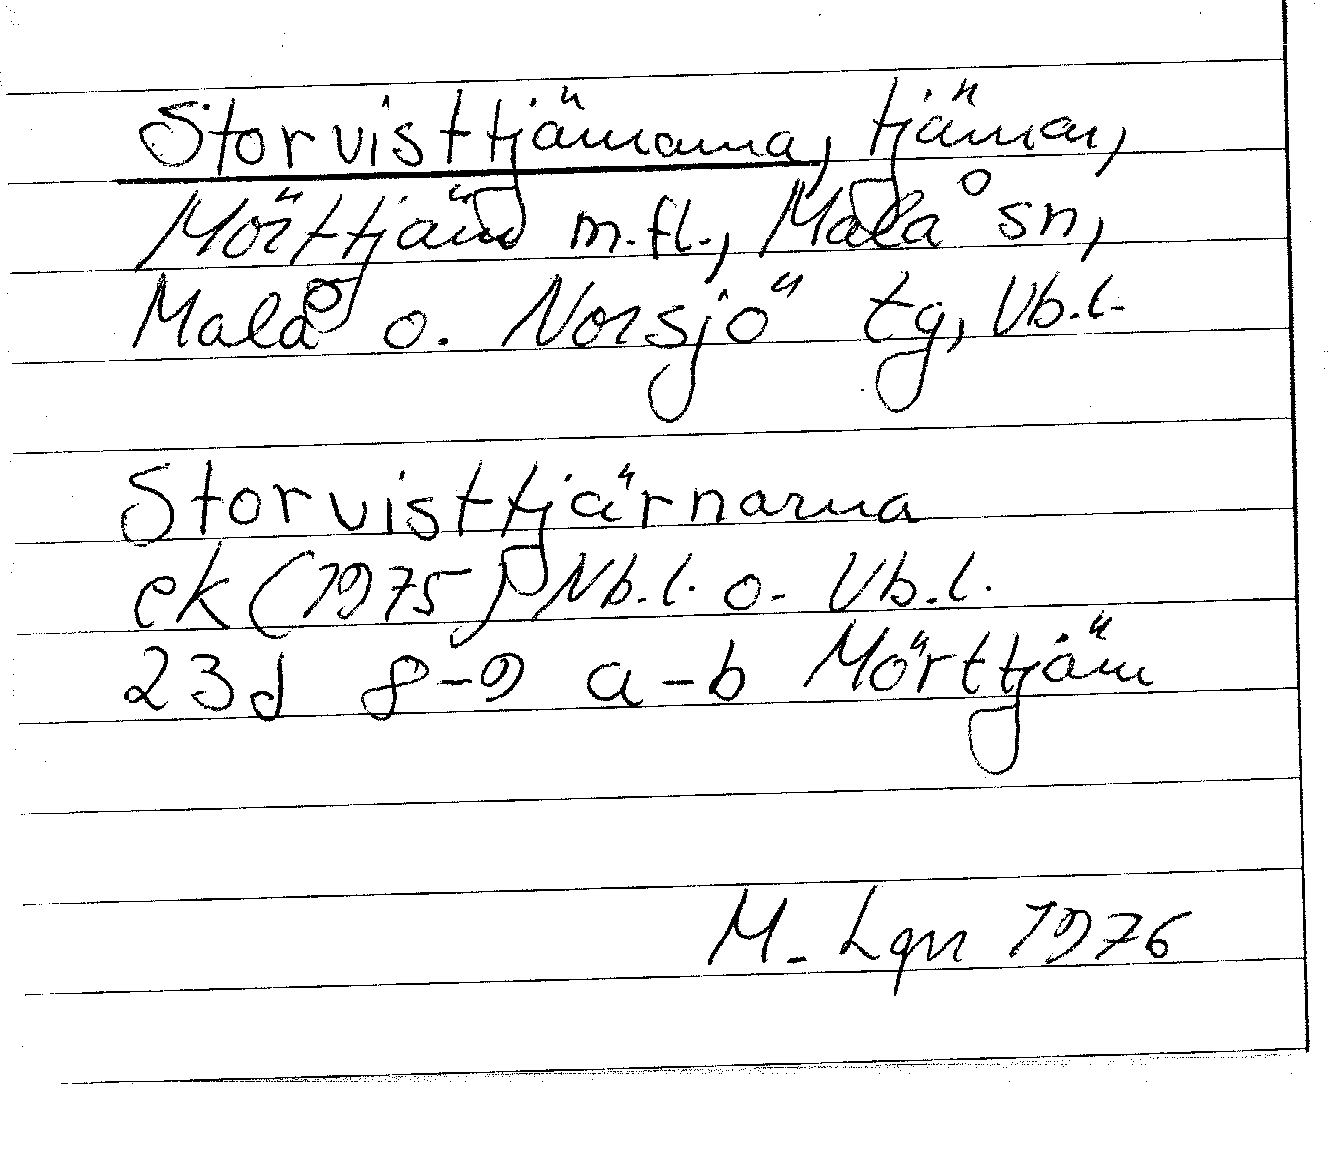 Storvisttjärnarna, tjärnar,
Mörttjärn m.fl., Malå sn,
Malå o. Norsjö tg, Vb.l.
Storvisttjärnarna
ek (1975) Nb.l. o. Vb.l.
23d 8-9 a-b Mörttjärn
M. Lgn 1976